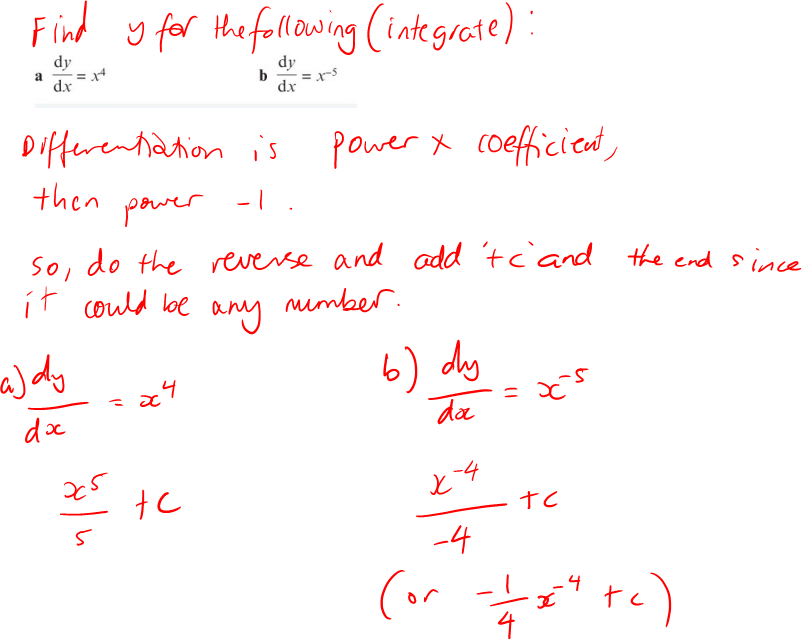 Find y for the following (integrate) :
a dy/dx = x⁴ b dy/dx = x⁻⁵
Differentiation is power x coefficient,
then power -1 .
so, do the reverse and add '+c' and the end since
it could be any number.
a) dy/dx = x⁴ b) dy/dx = x⁻⁵
x⁵/5 + C x⁻⁴/-4 + c
(or -1/4 x⁻⁴ + c)